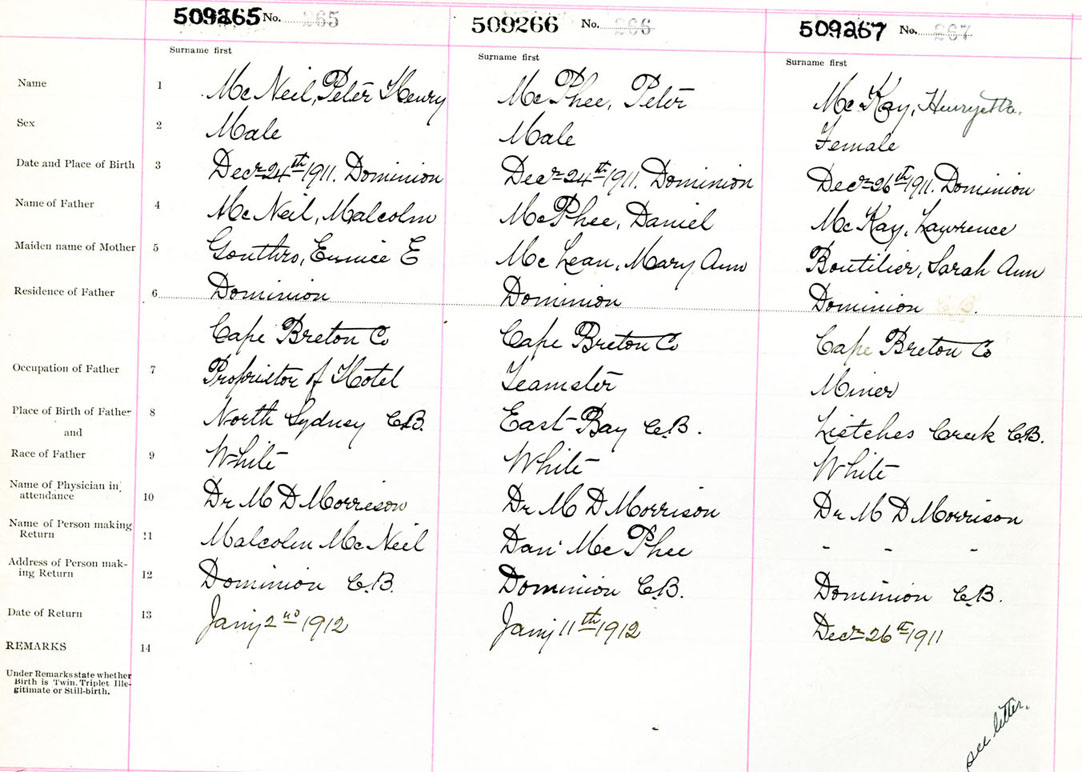 509265 No. 265 509266 No. 266 509267 No. 267
Surname first Surname first Surname first
Name 1 McNeil, Peter Henry McPhee, Peter McKay, Henryetta.
Sex 2 Male Male Female
Date and Place of Birth 3 Decr 24th 1911. Dominion Decr 24th 1911. Dominion Decr 26th 1911. Dominion
Name of Father 4 McNeil, Malcolm McPhee, Daniel McKay, Lawrence
Maiden name of Mother 5 Gouthro, Eunice E McLean, Mary Ann Boutilier, Sarah Ann
Residence of Father 6 Dominion Dominion Dominion
Cape Breton Co Cape Breton Co Cape Breton Co
Occupation of Father 7 Proprietor of Hotel Teamster Miner
Place of Birth of Father 8 North Sydney C.B. East Bay C.B. Lietches Creek C.B.
and
Race of Father 9 White White White
Name of Physician in
attendance 10 Dr M D Morrison Dr M D Morrison Dr M D Morrison
Name of Person making
Return 11 Malcolm McNeil Dan McPhee - - -
Address of Person mak-
ing Return 12 Dominion C.B. Dominion C.B. Dominion C.B.
Date of Return 13 Jany 2nd 1912 Jany 11th 1912 Decr 26th 1911
REMARKS 14
Under Remarks state whether
Birth is Twin, Triplet Ille-
gitimate or Still-birth.
see letter.